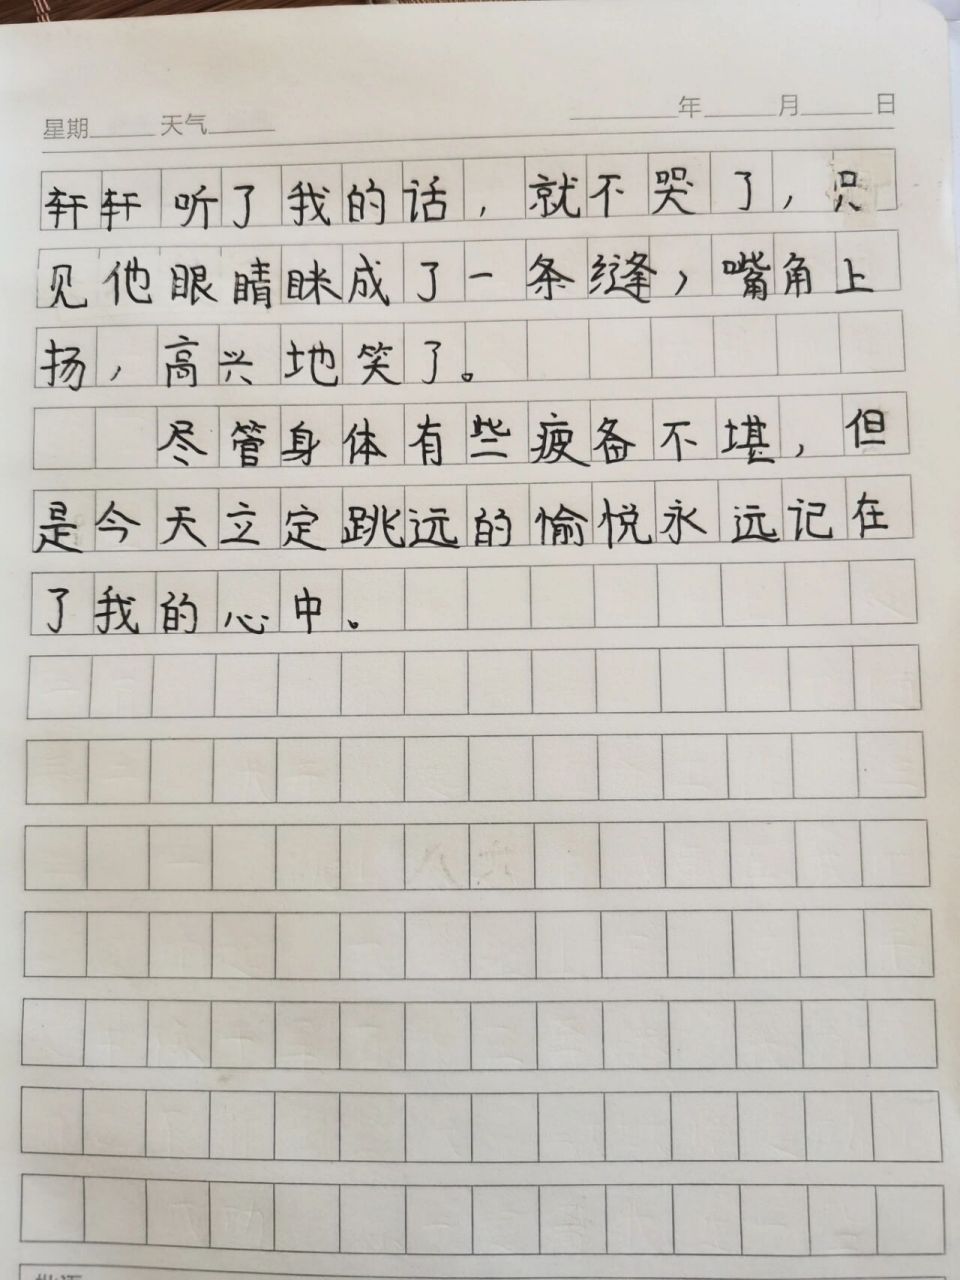 星期 天气 年 月 日
轩轩听了我的话，就不哭了，只
见他眼睛眯成了一条缝，嘴角上
扬，高兴地笑了。
尽管身体有些疲备不堪，但
是今天立定跳远的愉悦永远记在
了我的心中。